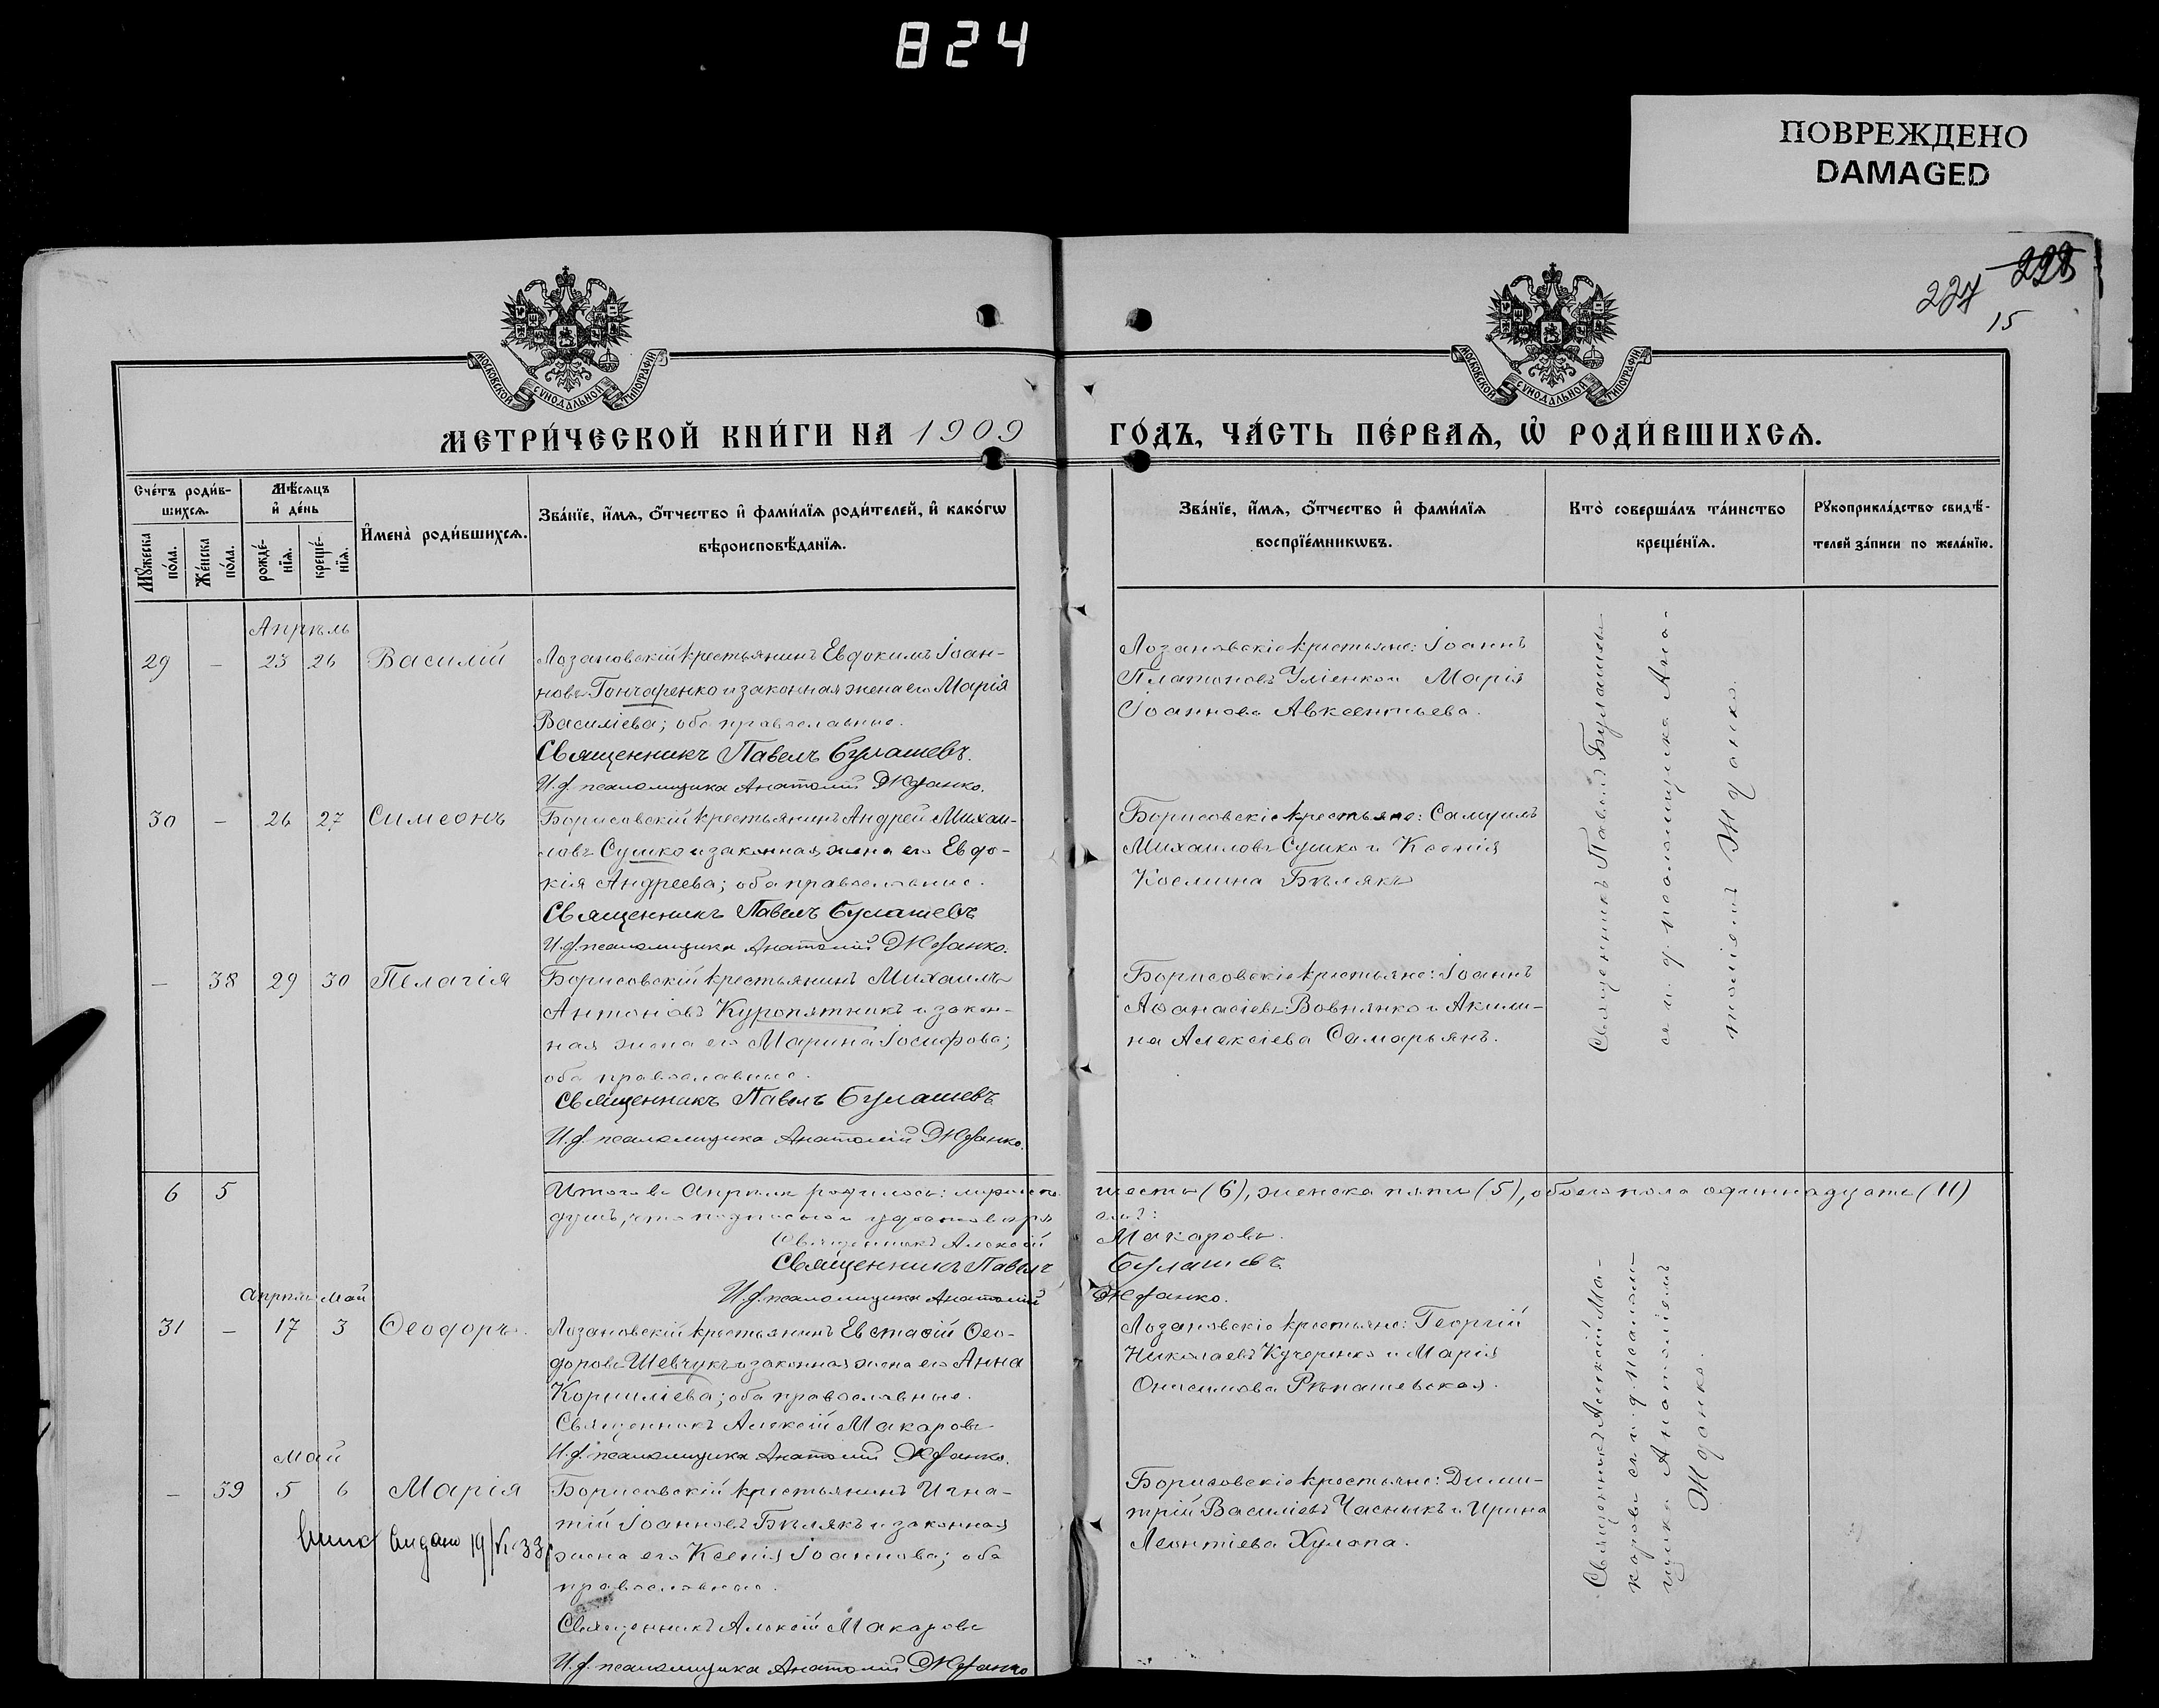 824
ПОВРЕЖДЕНО
DAMAGED
227 228
15
МОСКОВСКОЙ СѴНОДАЛЬНОЙ ТИПОГРАФІИ
МОСКОВСКОЙ СѴНОДАЛЬНОЙ ТИПОГРАФІИ
МЕТРИ́ЧЕСКОЙ КНИ́ГИ НА 1909 ГО́ДЪ, ЧА́СТЬ ПЕ́РВАѦ, Ѡ҆ РОДИ́ВШИХСѦ.
Сче́тъ роди́в-
шихсѧ.
Мꙋ́жеска по́ла.
Же́нска по́ла.
Мѣ́сѧцъ
и҆ де́нь
рожде́-
нїѧ.
креще́-
нїѧ.
И҆мена̀ роди́вшихсѧ.
Зва́нїе, и҆́мѧ, ѻ҆́тчество и҆ фами́лїѧ роди́телей, и҆ како́гѡ
вѣроисповѣ́данїѧ.
Зва́нїе, и҆́мѧ, ѻ҆́тчество и҆ фами́лїѧ
воспрїе́мникѡвъ.
Кто̀ соверша́лъ та́инство
креще́нїѧ.
Рꙋкоприкла́дство свидѣ́-
телей за́писи по жела́нїю.
Апрѣль
29 – 23 26 Василій
Лозановскій крестьянинъ Евдокимъ Іоан-
новъ Гончаренко и законная жена его Марія
Василіева; оба православные.
Священникъ Павелъ Булашевъ.
И. д. псаломщика Анатолій Жданко.
Лозановскіе крестьяне: Іоаннъ
Платоновъ Уліенко и Марія
Іоаннова Авксентьева.
30 – 26 27 Симеонъ
Борисовскій крестьянинъ Андрей Михаи-
ловъ Сушко и законная жена его Евдо-
кія Андреева; оба православные.
Священникъ Павелъ Булашевъ
И. д. псаломщика Анатолій Жданко.
Борисовскіе крестьяне: Самуилъ
Михаиловъ Сушко и Ксенія
Космина Бѣлякъ
– 38 29 30 Пелагія
Борисовскій крестьянинъ Михаилъ
Антоніовъ Куропятникъ и закон-
ная жена его Марина Іосифова;
оба православные.
Священникъ Павелъ Булашевъ
И. д. псаломщика Анатолій Жданко.
Борисовскіе крестьяне: Іоаннъ
Аѳанасіевъ Вовнянко и Акили-
на Алексіева Самарьянъ.
Священникъ Павелъ Булашевъ
съ и. д. псаломщика Ана-
толіемъ Жданко.
6 5
Итого въ Апрѣлѣ родилось: мужеска шесть (6), женска пять (5), обоего пола одиннадцать (11)
душъ, что подписью и удостовѣряемъ:
Священникъ Алексій Макаровъ.
Священникъ Павелъ Булашевъ
И. д. псаломщика Анатолій Жданко.
Апрѣль Май
31 – 17 3 Ѳеодоръ.
Лозановскій крестьянинъ Евстаѳій Ѳео-
доровъ Шевчукъ и законная жена его Анна
Корниліева; оба православные.
Священникъ Алексій Макаровъ
И. д. псаломщика Анатолій Жданко.
Лозановскіе крестьяне: Георгій
Николаевъ Кучеренко и Марія
Онисимова Рѣпашевская.
Май
– 39 5 6 Марія
Борисовскій крестьянинъ Игна-
тій Іоанновъ Бѣлякъ и законная
жена его Ксенія Іоаннова; оба
православные.
Священникъ Алексій Макаровъ
И. д. псаломщика Анатолій Жданко
видано 19/VI 33
Борисовскіе крестьяне: Дими-
трій Василіевъ Часникъ и Ирина
Леонтіева Хулапа.
Священникъ Алексій Ма-
каровъ съ и. д. псалом-
щика Анатоліемъ
Жданко.